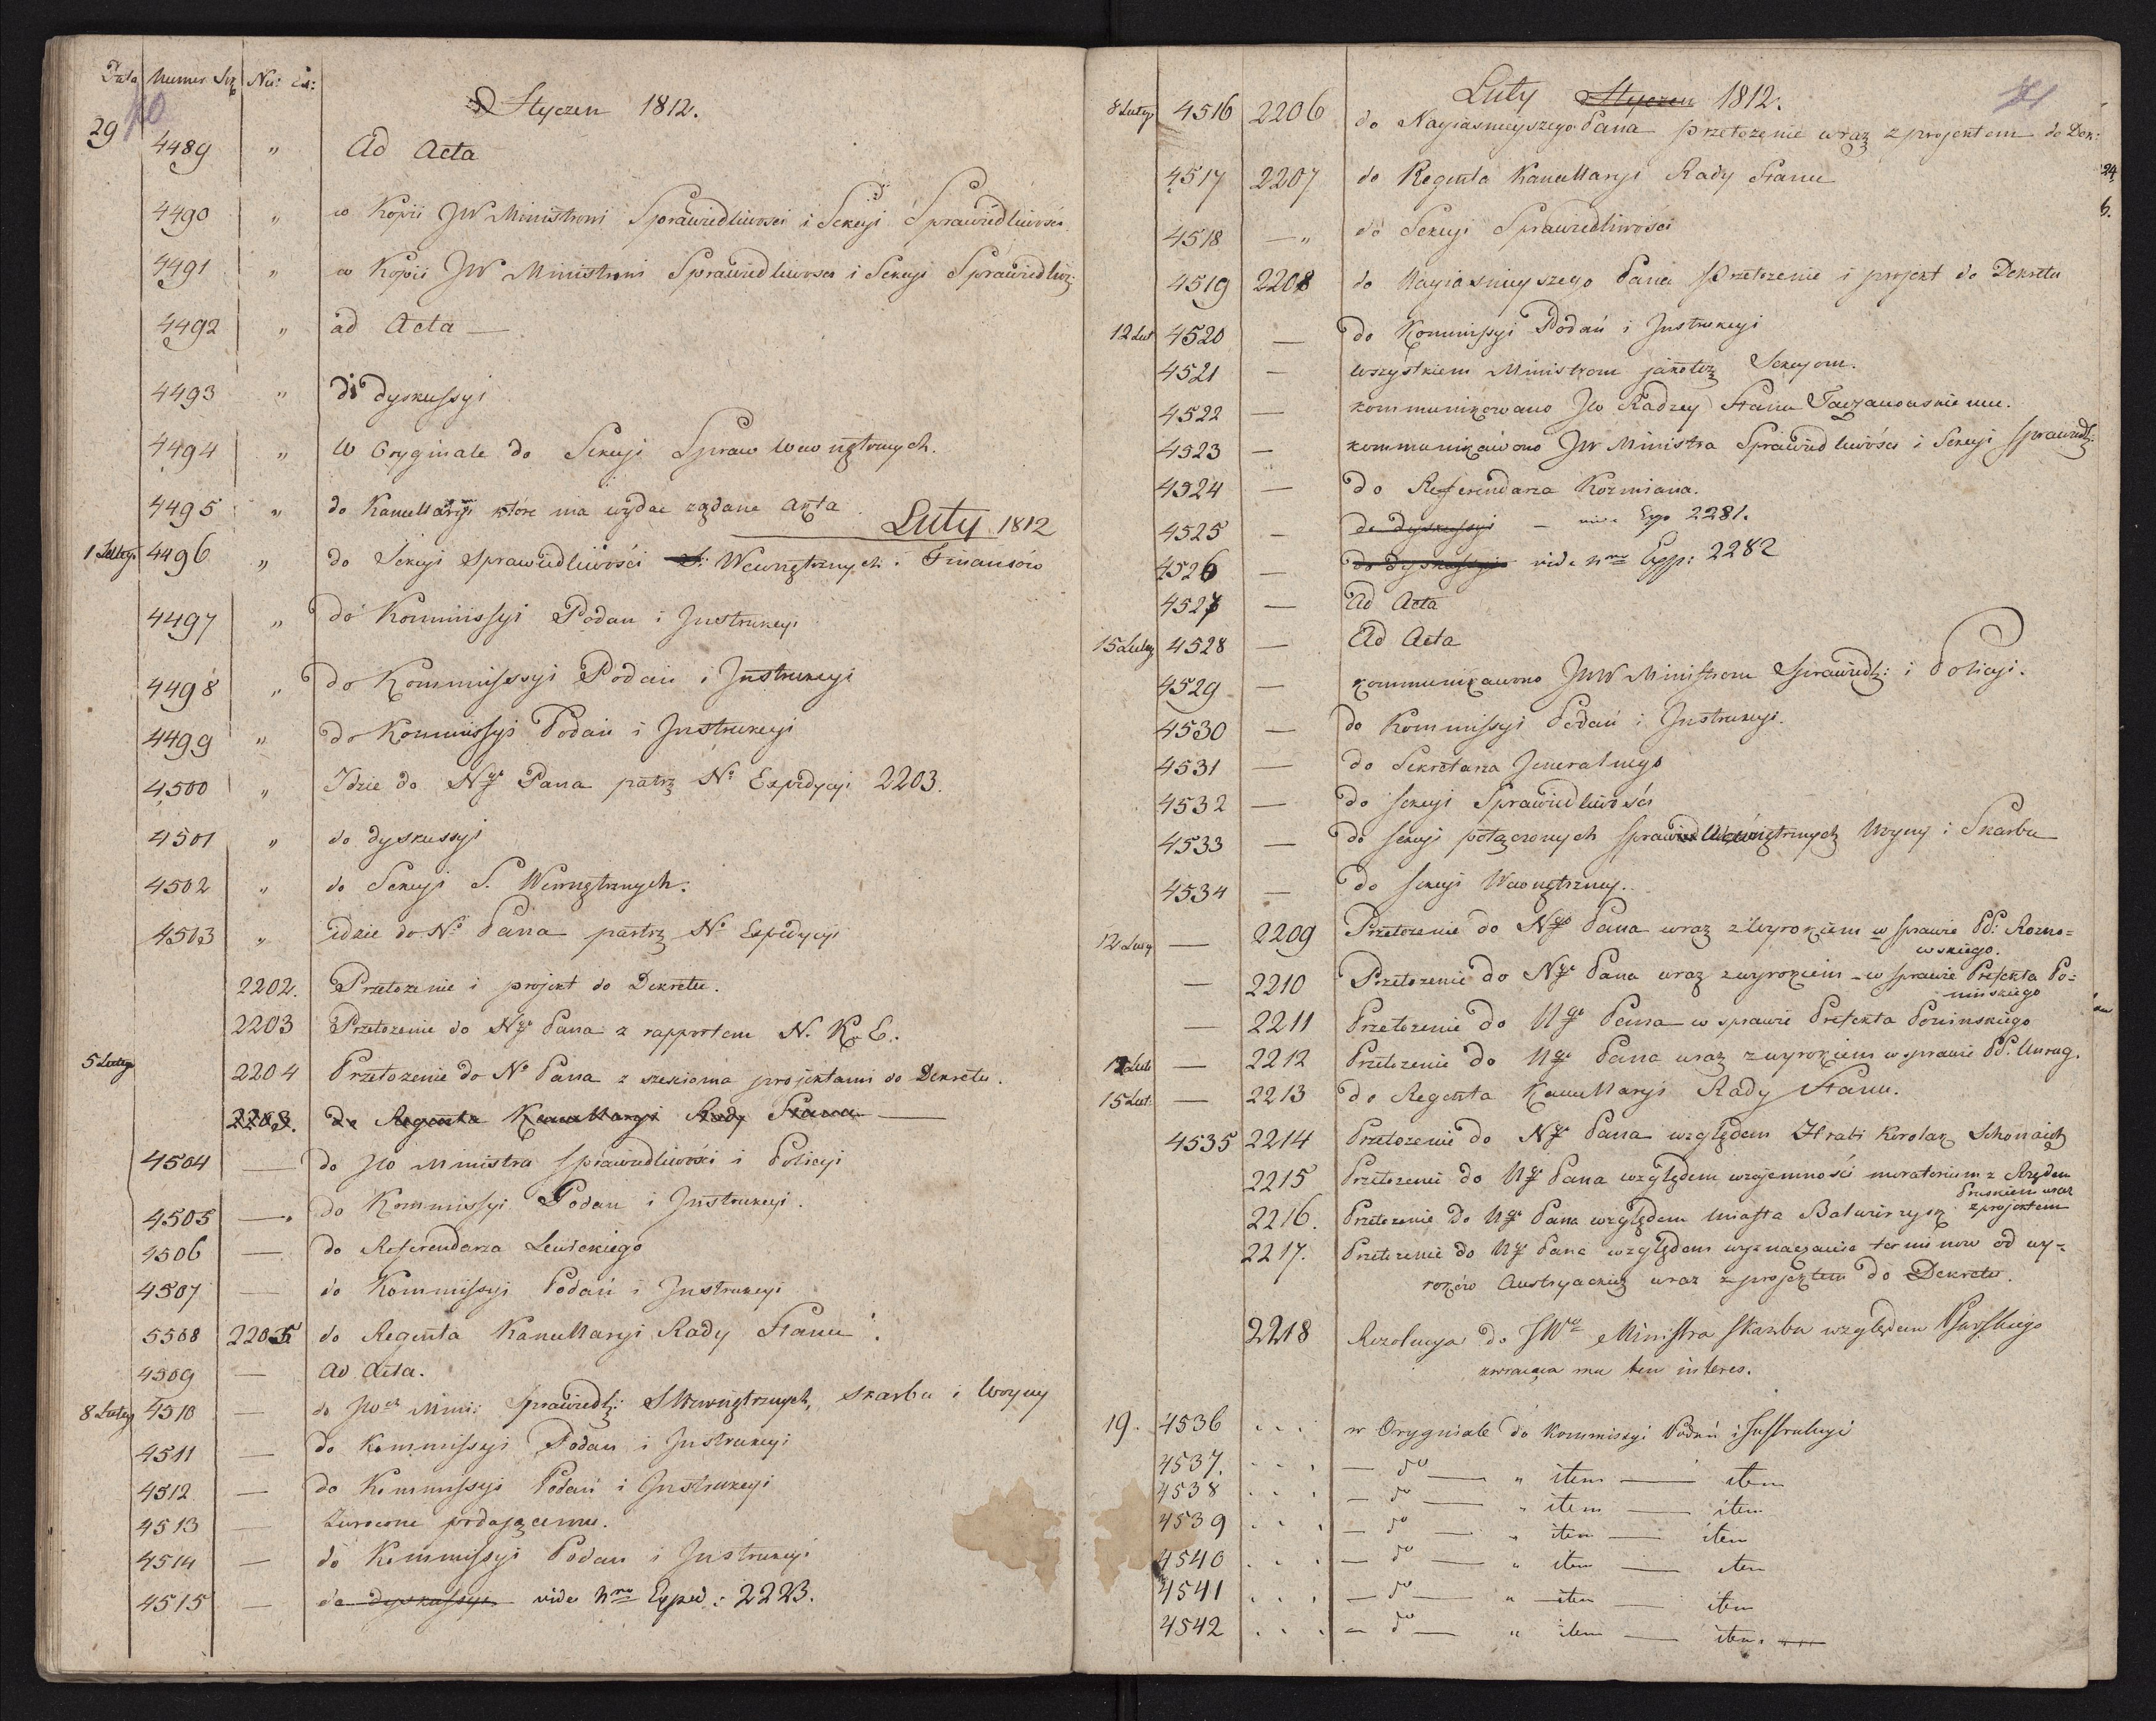 Data Numer Nu:
Styczen 1812.
29 4489 " Ad Acta
4490 " w Kopii JW Ministrowi Sprawiedliwosci i Sekcyi Sprawiedliwości
4491 " w Kopii JW Ministrowi Sprawiedliwosci i Sekcyi Sprawiedliw:
4492 " ad Acta —
4493 " do dyskussyi
4494 " W Oryginale do Sekcyi Spraw wewnętrznych.
4495 " do Kancellaryi które ma wydać żądane Akta
Luty 1812
1 Lutego 4496 " do Sekcyi Sprawiedliwości S: Wewnętrznych i Finansów
4497 " do Kommissyi Podan i Instrukcyi
4498 " do Kommissyi Podań i Instrukcyi
4499 " do Kommissyi Podań i Instrukcyi
4500 " Idzie do Ngo Pana patrz No Expedycyi 2203.
4501 " do dyskussyi
4502 " do Sekcyi S. Wewnętrznych.
4503 " idzie do No Pana patrz No Expedycyi
2202. Przełożenie i projekt do Dekretu.
2203 Przełożenie do Ngo Pana z rapportem N. K. E.
5 Lutego 2204 Przełożenie do No Pana z sześcioma projektami do Dekretu.
2203. do Regenta Kancellaryi Rady Stanu —
4504 — do JW Ministra Sprawiedliwości i Policyi
4505 — do Kommissyi Podan i Instrukcyi.
4506 — do Referendarza Lewickiego
4507 — do Kommissyi Podań i Instrukcyi
5508 2205 do Regenta Kancellaryi Rady Stanu.
4509 — Ad Acta.
8 Lutego 4510 — do JWch Mini: Sprawiedl: S Wewnętrznych, Skarbu i Woyny
4511 — do Kommissyi Podań i Instrukcyi
4512 — do Kommissyi Podań i Instrukcyi
4513 — Zwrócone podającemu.
4514 — do Kommissyi Podan i Instrukcyi
4515 — do dyskussyi vide Nro Exped: 2223.
Luty Styczen 1812.
8 Lutego 4516 2206 do Nayiasnieyszego Pana przełożenie wraz z projektem do Dek:
4517 2207 do Regenta Kancellaryi Rady Stanu
4518 — " do Sekcyi Sprawiedliwości
4519 2208 do Nayiasnieyszego Pana Przełożenie i projekt do Dekretu
12 Lut 4520 — do Kommissyi Podań i Instrukcyi
4521 — wszystkiem Ministrom jakoteż Sekcyom.
4522 — kommunikowano JW Radzcy Stanu
4523 — kommunikowano JW Ministra Sprawiedliwości i Sekcyi Sprawiedl:
4524 — do Referendarza Koźmiana.
4525 — do dyskussyi — vide Exp 2281.
4526 — do dyskussyi vide nro Exp: 2282
4527 — Ad Acta
15 Lutego 4528 — Ad Acta
4529 — kommunikowano JWW Ministrom Sprawiedl: i Policyi.
4530 — do Kommissyi Podań i Instrukcyi.
4531 — do Sekretarza Jeneralnego
4532 — do Sekcyi Sprawiedliwości
4533 — do Sekcyi połączonych Spraw Wewnętrznych Woyny i Skarbu
4534 — do Sekcyi Wewnętrzney.
12 Lutego — 2209 Przełożenie do Ngo Pana wraz z Wyrokiem w sprawie PP: Rozno=
wskiego.
— 2210 Przełożenie do Ngo Pana wraz z wyrokiem w sprawie Prefekta Po=
nińskiego
— 2211 Przełożenie do Ngo Pana w sprawie Prefekta Poninskiego
12 Lut: — 2212 Przełożenie do Ngo Pana wraz z wyrokiem w sprawie PP: Unrug.
15 Lut: — 2213 do Regenta Kancellaryi Rady Stanu.
4535 2214 Przełożenie do Ngo Pana względem Hrabi Schonaich
2215 Przełożenie do Ngo Pana względem wzajemności moratorium z Rządem
Pruskiem wraz
z projektem
2216. Przełożenie do Ngo Pana względem Miasta
2217. Przełożenie do Ngo Pana względem wyznaczenia terminow od wy=
roków Austryackich wraz z projektem do Dekretu.
2218 Rezolucya do JWo Ministra Skarbu względem
zwracaiąca mu ten interes.
19. 4536 . . . w Oryginale do Kommissyi Podań i Instrukcyi
4537. . . . — do — " item — item
4538 . . . — do — " item — item
4539 . . . — do — " item — item
4540 . . . — do — " item — item
4541 . . . — do — " item — item
4542 . . . — do — " item — item.